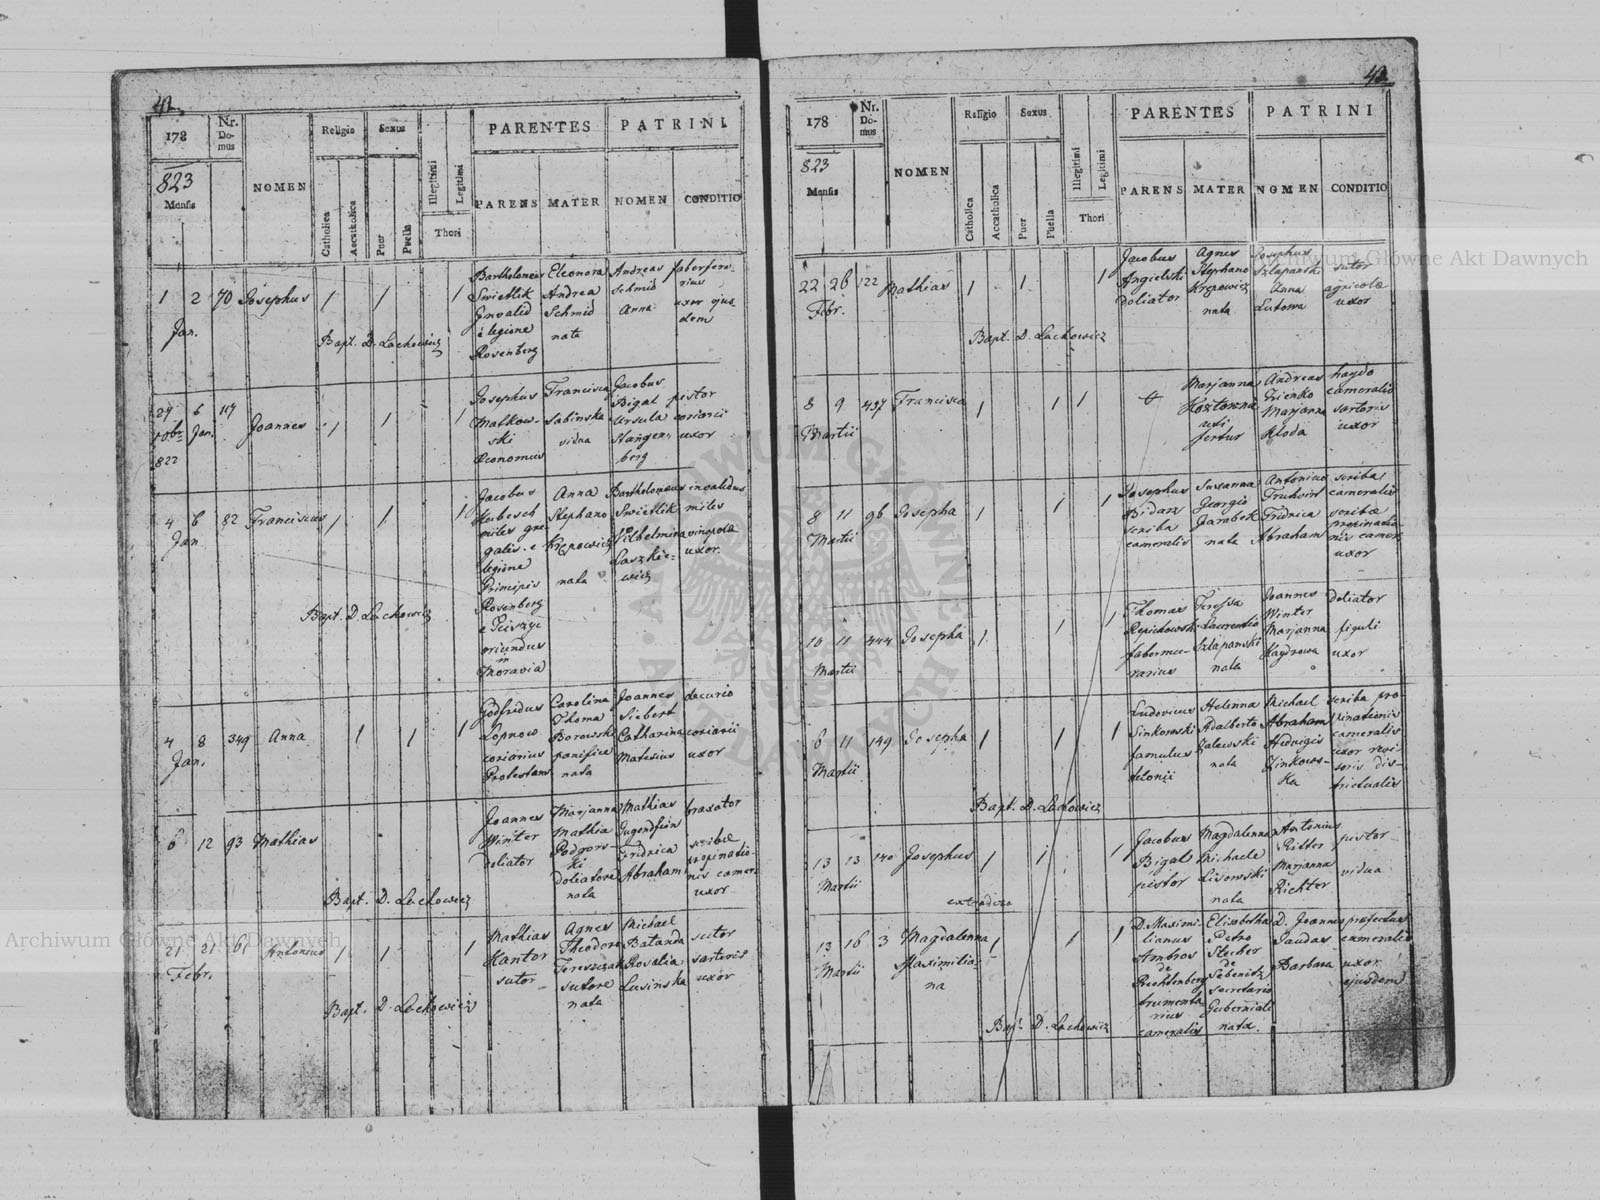 42.
178
Nr. Domus
NOMEN
Religio
Sexus
PARENTES
PATRINI
823
Mensis
Catholica
Accatholica
Puer
Puella
Illegitimi
Legitimi
Thori
PARENS
MATER
NOMEN
CONDITIO
1 2 70 Josephus 1 1 1
Jan.
Bartholomeus
Swietlik
Invalid
è legione
Rosenberg
Eleonora
Andrea
Schmid
nata
Andreas
Schmid
Anna
faber ferra-
rius
uxor ejus
dem
Bapt. D. Lachowicz
29 6 117 Joannes 1 1 1
Jan.
822
Josephus
Malkow-
ski
Œconomus
Francisca
Sabinska
vidua
Jacobus
Bigal
Ursula
Stangen-
berg
pistor
coriarii
uxor
4 6 82 Franciscus 1 1 1
Jan
Jacobus
miles gre
galis e
legione
Principis
Rosenberg
oriundus
in
Moravia
Anna
Stephano
Krępowicz
nata
Bartholomeus
Swietlik
Wilhelmina
Laszkie-
wicz
invalidus
miles
vinopolæ
uxor.
Bapt. D. Lachowicz
4 8 349 Anna 1 1 1
Jan.
Godfridus
Lopnow
coriarius
Protestans
Carolina
Thoma
Borowski
panifica
nata
Joannes
Siebert
Catharina
Matesius
decurio
coriarii
uxor
6 12 93 Mathias
Joannes
Winter
doliator
Marjanna
Mathia
Podgors-
ki
doliatore
nata
Mathias
Jugendfein
Fridrica
Abraham
braxator
scribæ
propinatio-
nis camer:
uxor
Bapt. D. Lachowicz
21 21 61 Antonius 1 1 1
Febr.
Mathias
Kantor
sutor
Agnes
Theodoro
Tereszczak
sutore
nata
Michael
Batanda
Rosalia
Lusinska
sutor
sartoris
uxor
Bapt. D. Lachowicz
43.
178
Nr. Domus
NOMEN
Religio
Sexus
PARENTES
PATRINI
823
Mensis
Catholica
Accatholica
Puer
Puella
Illegitimi
Legitimi
Thori
PARENS
MATER
NOMEN
CONDITIO
22 26 122 Mathias 1 1 1
Febr.
Jacobus
Angielski
doliator
Agnes
Stephano
Krępowicz
nata
Josephus
Szlapanski
Anna
Lutowa
sutor
agricolæ
uxor
Bapt. D. Lachowicz
8 9 437 Francisca 1 1 1
Martii
Marjanna
uti
fertur
Andreas
Zienko
Marjanna
Kloda
haydo
cameralis
sartoris
uxor
8 11 96 Josepha 1 1 1
Martii
Josephus
Bidan
scriba
cameralis
Susanna
Georgio
Jarabek
nata
Antonius
Fridrica
Abraham
scriba
cameralis
scribæ
propinatio-
nis camer:
uxor
10 11 444 Josepha 1 1 1
Martii
Thomas
Repichowski
faber mu-
rarius
Teressa
Laurentio
Szlapanski
nata
Joannes
Winter
Marjanna
Haydrowa
doliator
figuli
uxor
6 11 149 Josepha 1 1 1
Martii
Ludovicus
Sinkowski
famulus
telonii
Helenna
Adalberto
Zalewski
nata
Michael
Abraham
Hedvigis
Zinkows-
ka
scriba pro-
pinationis
cameralis
uxor revi-
soris dis-
trictualis
Bapt. D. Lachowicz
13 13 140 Josephus 1 1 1
Martii
Jacobus
Bigal
pistor
Magdalenna
Michaele
Lisowski
nata
Antonius
Ritter
Marjanna
Richter
pistor
vidua
extradita
13 16 3 Magdalenna 1 1 1
Martii
Maximilia-
na
D. Maximi-
lianus
Ambros
de
Rechtenberg
frumenta
rius
cameralis
Elisabetha
Petro
Stecher
de
Sebenitz
secretario
Guberniali
nata.
D. Joannes
Jaudas
Barbara
præfectus
cameralis
uxor
ejusdem
Bapt. D. Lachowicz
Archiwum Główne Akt Dawnych
Archiwum Główne Akt Dawnych